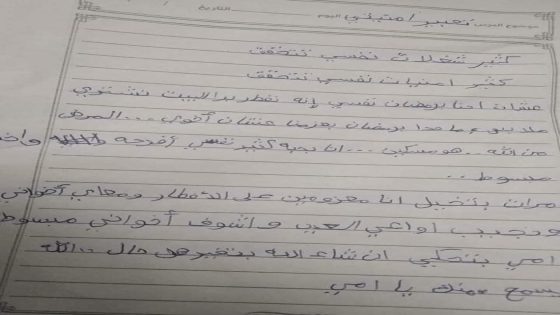 موضوع الدرس تعبير / امنيتي اليوم التاريخ
كثير شغلات نفسي تتحقق
كثير امنيات نفسي تتحقق
عشان احنا برمضان نفسي إنه نفطر برا البيت نشتوي
حدا برمضان يعزمنا عشان أخوي ... المرض
من الله .. هو مسكين ... انا بحبه كثير نفسي أفرحه
مبسوط ..
مرات بتخيل انا معزومين على الافطار ومعاي أخواني
ونجيب اواعي العيد واشوف أخواني مبسوط
امي بتحكي ان شاء الله بتغير حال .. الله
يسمع منك يا امي